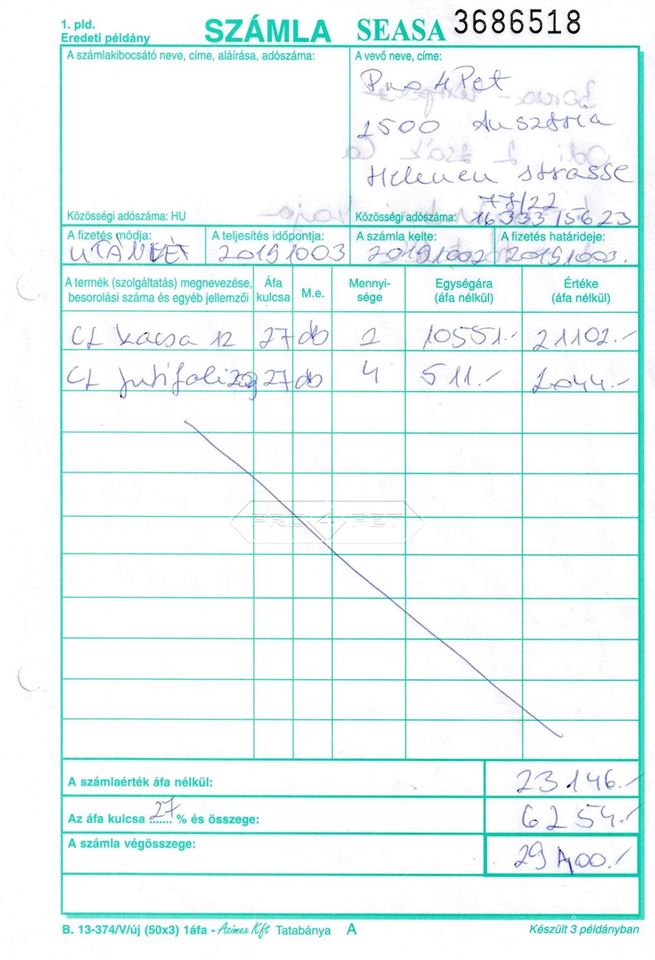 1. pld.
Eredeti példány
SZÁMLA SEASA 3686518
A számlakibocsátó neve, címe, aláírása, adószáma:
Közösségi adószáma: HU
A vevő neve, címe:
Pro 4 Pet
2500 Ausztria
Helenen strasse
78/22
Közösségi adószáma: 16333 15623
A fizetés módja: A teljesítés időpontja: A számla kelte: A fizetés határideje:
UTÁNVÉT 20191003 20191002 20191003.
A termék (szolgáltatás) megnevezése, besorolási száma és egyéb jellemzői
Áfa kulcsa
M.e.
Mennyi-sége
Egységára (áfa nélkül)
Értéke (áfa nélkül)
CL kacsa 12 27 db 2 10551.- 21102.-
CL 27 db 4 511.- 2044.-
PRO4PET
A számlaérték áfa nélkül: 23146.-
Az áfa kulcsa 27 % és összege: 6254.-
A számla végösszege: 29400.-
B. 13-374/V/új (50x3) 1áfa - Azimex Kft Tatabánya A Készült 3 példányban